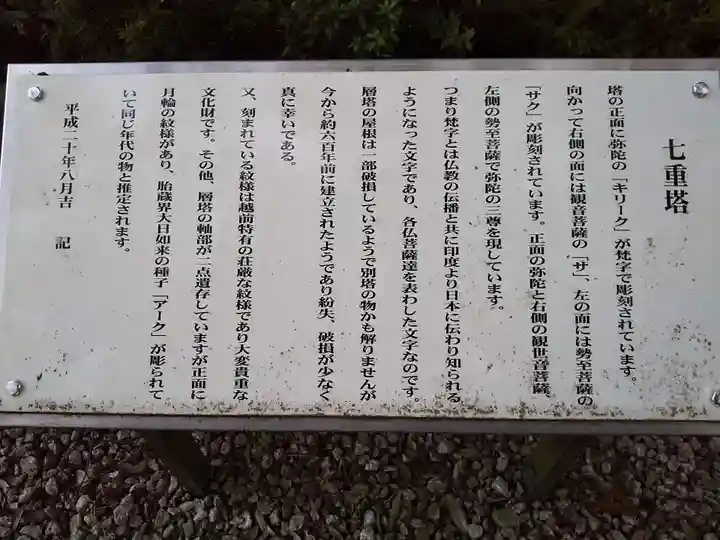 七重塔
塔の正面に弥陀の「キリーク」が梵字で彫刻されています。
向かって右側の面には観音菩薩の「サ」、左の面には勢至菩薩の
「サク」が彫刻されています。正面の弥陀と右側の観世音菩薩、
左側の勢至菩薩で弥陀の三尊を現しています。
つまり梵字とは仏教の伝播と共に印度より日本に伝わり知られる
ようになった文字であり、各仏菩薩達を表わした文字なのです。
層塔の屋根は一部破損しているようで別塔の物かも解りませんが
今から約六百年前に建立されたようであり紛失、破損が少なく
真に幸いである。
又、刻まれている紋様は越前特有の荘厳な紋様であり大変貴重な
文化財です。その他、層塔の軸部が二点遺存していますが正面に
月輪の紋様があり、胎蔵界大日如来の種子「アーク」が彫られて
いて同じ年代の物と推定されます。
平成二十年八月吉 記